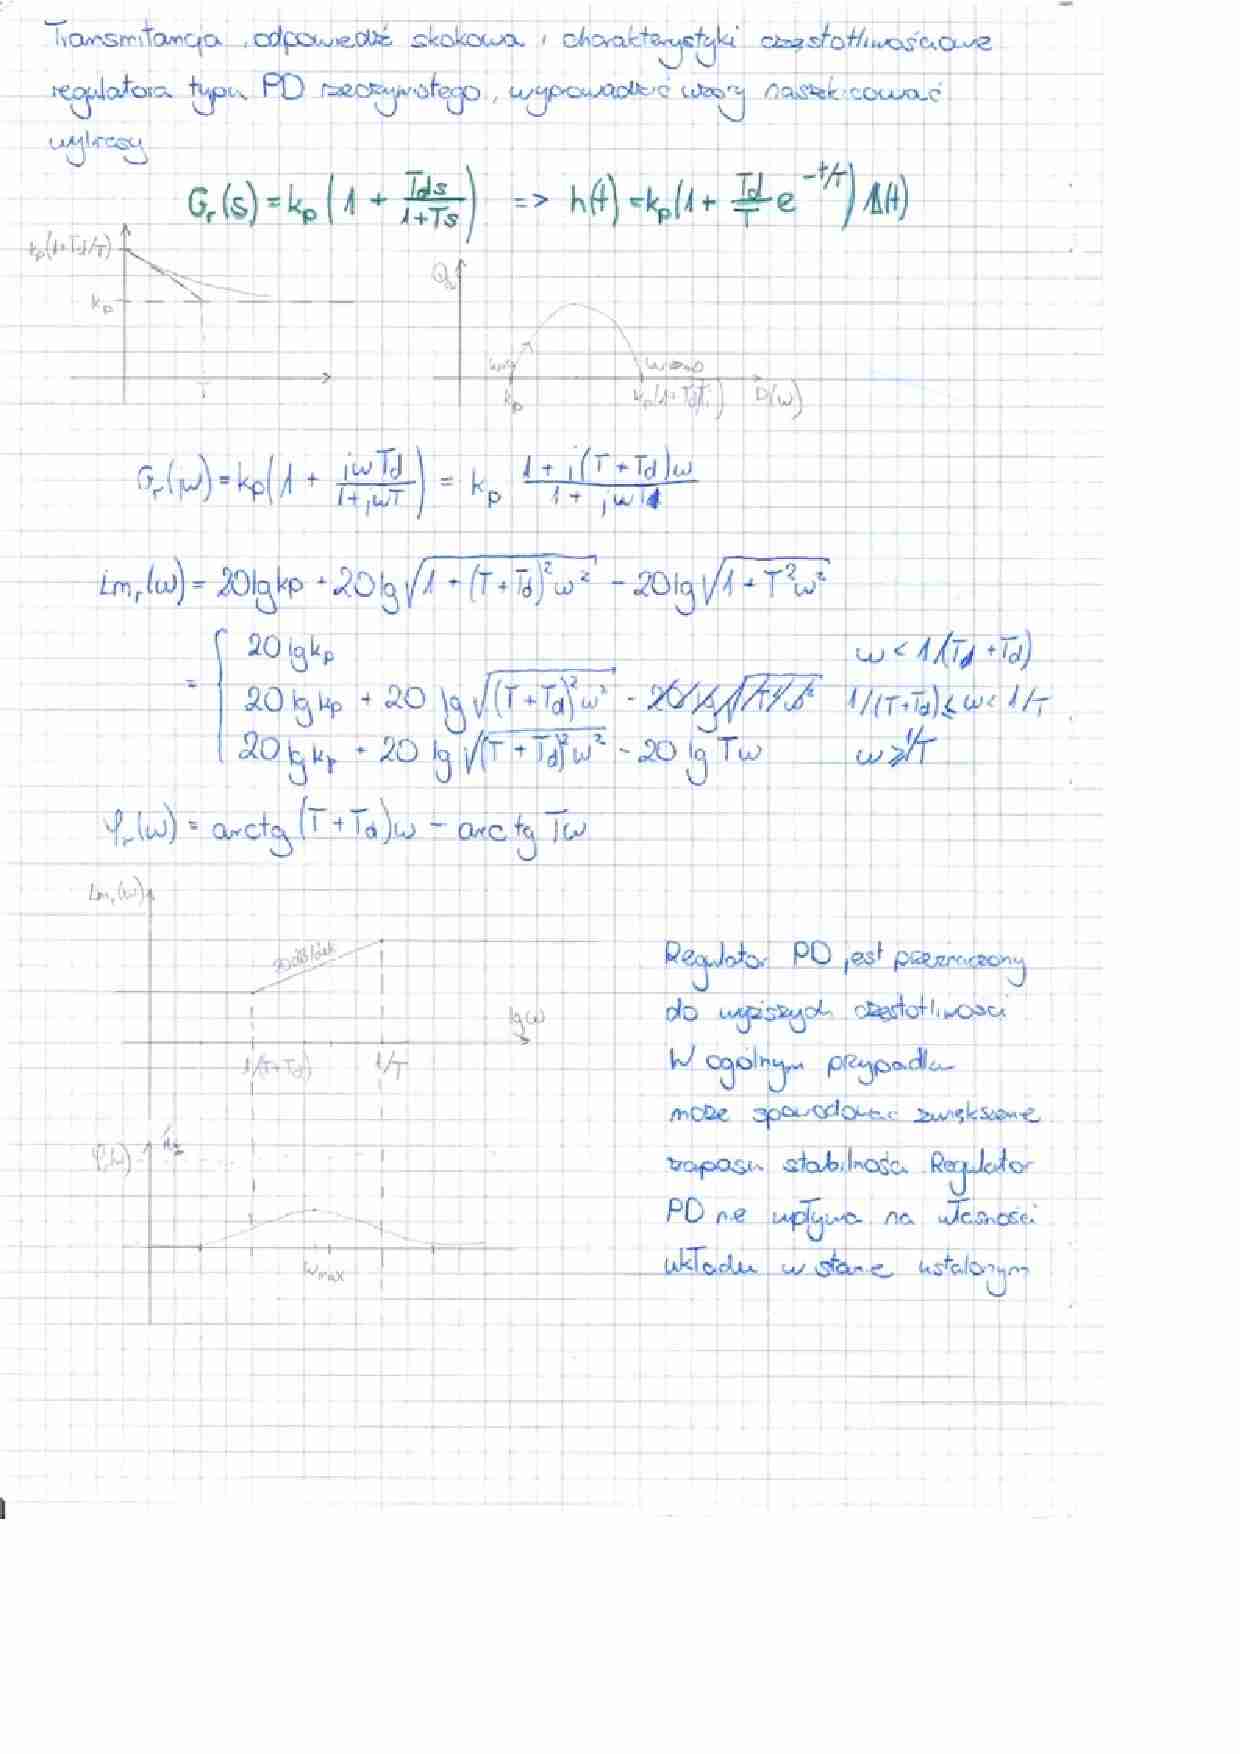 Transmitancja, odpowiedź skokowa i charakterystyki częstotliwościowe
regulatora typu PD rzeczywistego, wyprowadzić wzory naszkicować
wykresy
G_r(s) = k_p(1 + Tds/(1+Ts)) => h(t) = k_p(1 + Td/T e^(-t/T)) 1(t)
k_p(1+Td/T)
k_p
T
Q
ω=0
ω=∞
k_p
k_p(1+Td/T)
P(ω)
G_r(jω) = k_p(1 + jωT_d/(1+jωT)) = k_p (1 + j(T+T_d)ω)/(1 + jωT)
Lm_r(ω) = 20lgk_p + 20lg√(1 + (T+T_d)²ω²) - 20lg√(1 + T²ω²)
= { 20lgk_p ω < 1/(Td + T_d)
20lgk_p + 20 lg√((T+T_d)²ω²) 1/(T+T_d) ≤ ω < 1/T
20lgk_p + 20 lg√((T+T_d)²ω²) - 20 lg Tω ω ≥ 1/T
φ_r(ω) = arctg(T+T_d)ω - arctg Tω
Lm_r(ω)
20dB/dek
lg ω
1/(T+T_d)
1/T
φ(ω)
ω_max
Regulator PD jest przeznaczony
do wyższych częstotliwości
W ogólnym przypadku
może spowodować zwiększenie
zapasu stabilności Regulator
PD nie wpływa na własności
układu w stanie ustalonym